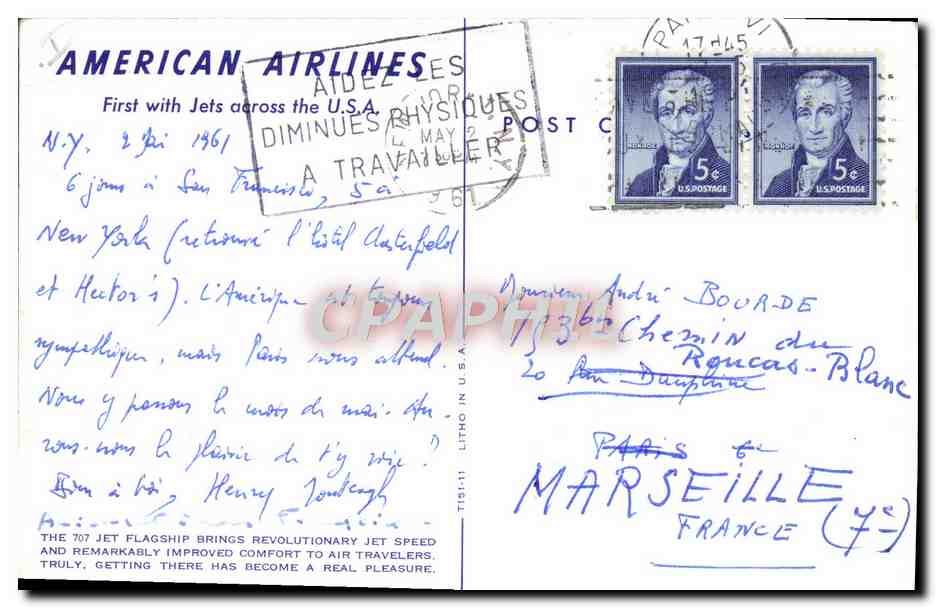 AMERICAN AIRLINES
First with Jets across the U.S.A.
AIDEZ LES
DIMINUES PHYSIQUES
A TRAVAILLER
MAY 2
1961
N.Y. 2 Mai 1961
6 jours à San Francisco, 5 à
New York (retrouvé l'hôtel Chesterfield
et Hector's). L'Amérique est toujours
sympathique, mais Paris nous attend.
Nous y passons le mois de mai. Au-
rons-nous le plaisir de t'y voir?
Bien à toi, Henry
THE 707 JET FLAGSHIP BRINGS REVOLUTIONARY JET SPEED
AND REMARKABLY IMPROVED COMFORT TO AIR TRAVELERS.
TRULY, GETTING THERE HAS BECOME A REAL PLEASURE.
T151-11 LITHO IN U.S.A.
POST C
17H45
MONROE 5¢ U.S. POSTAGE
MONROE 5¢ U.S. POSTAGE
Monsieur André BOURDE
193 bis Chemin du
Roucas-Blanc
20 Dauphine
PARIS 6e
MARSEILLE
FRANCE (7e)
CPAPHIL